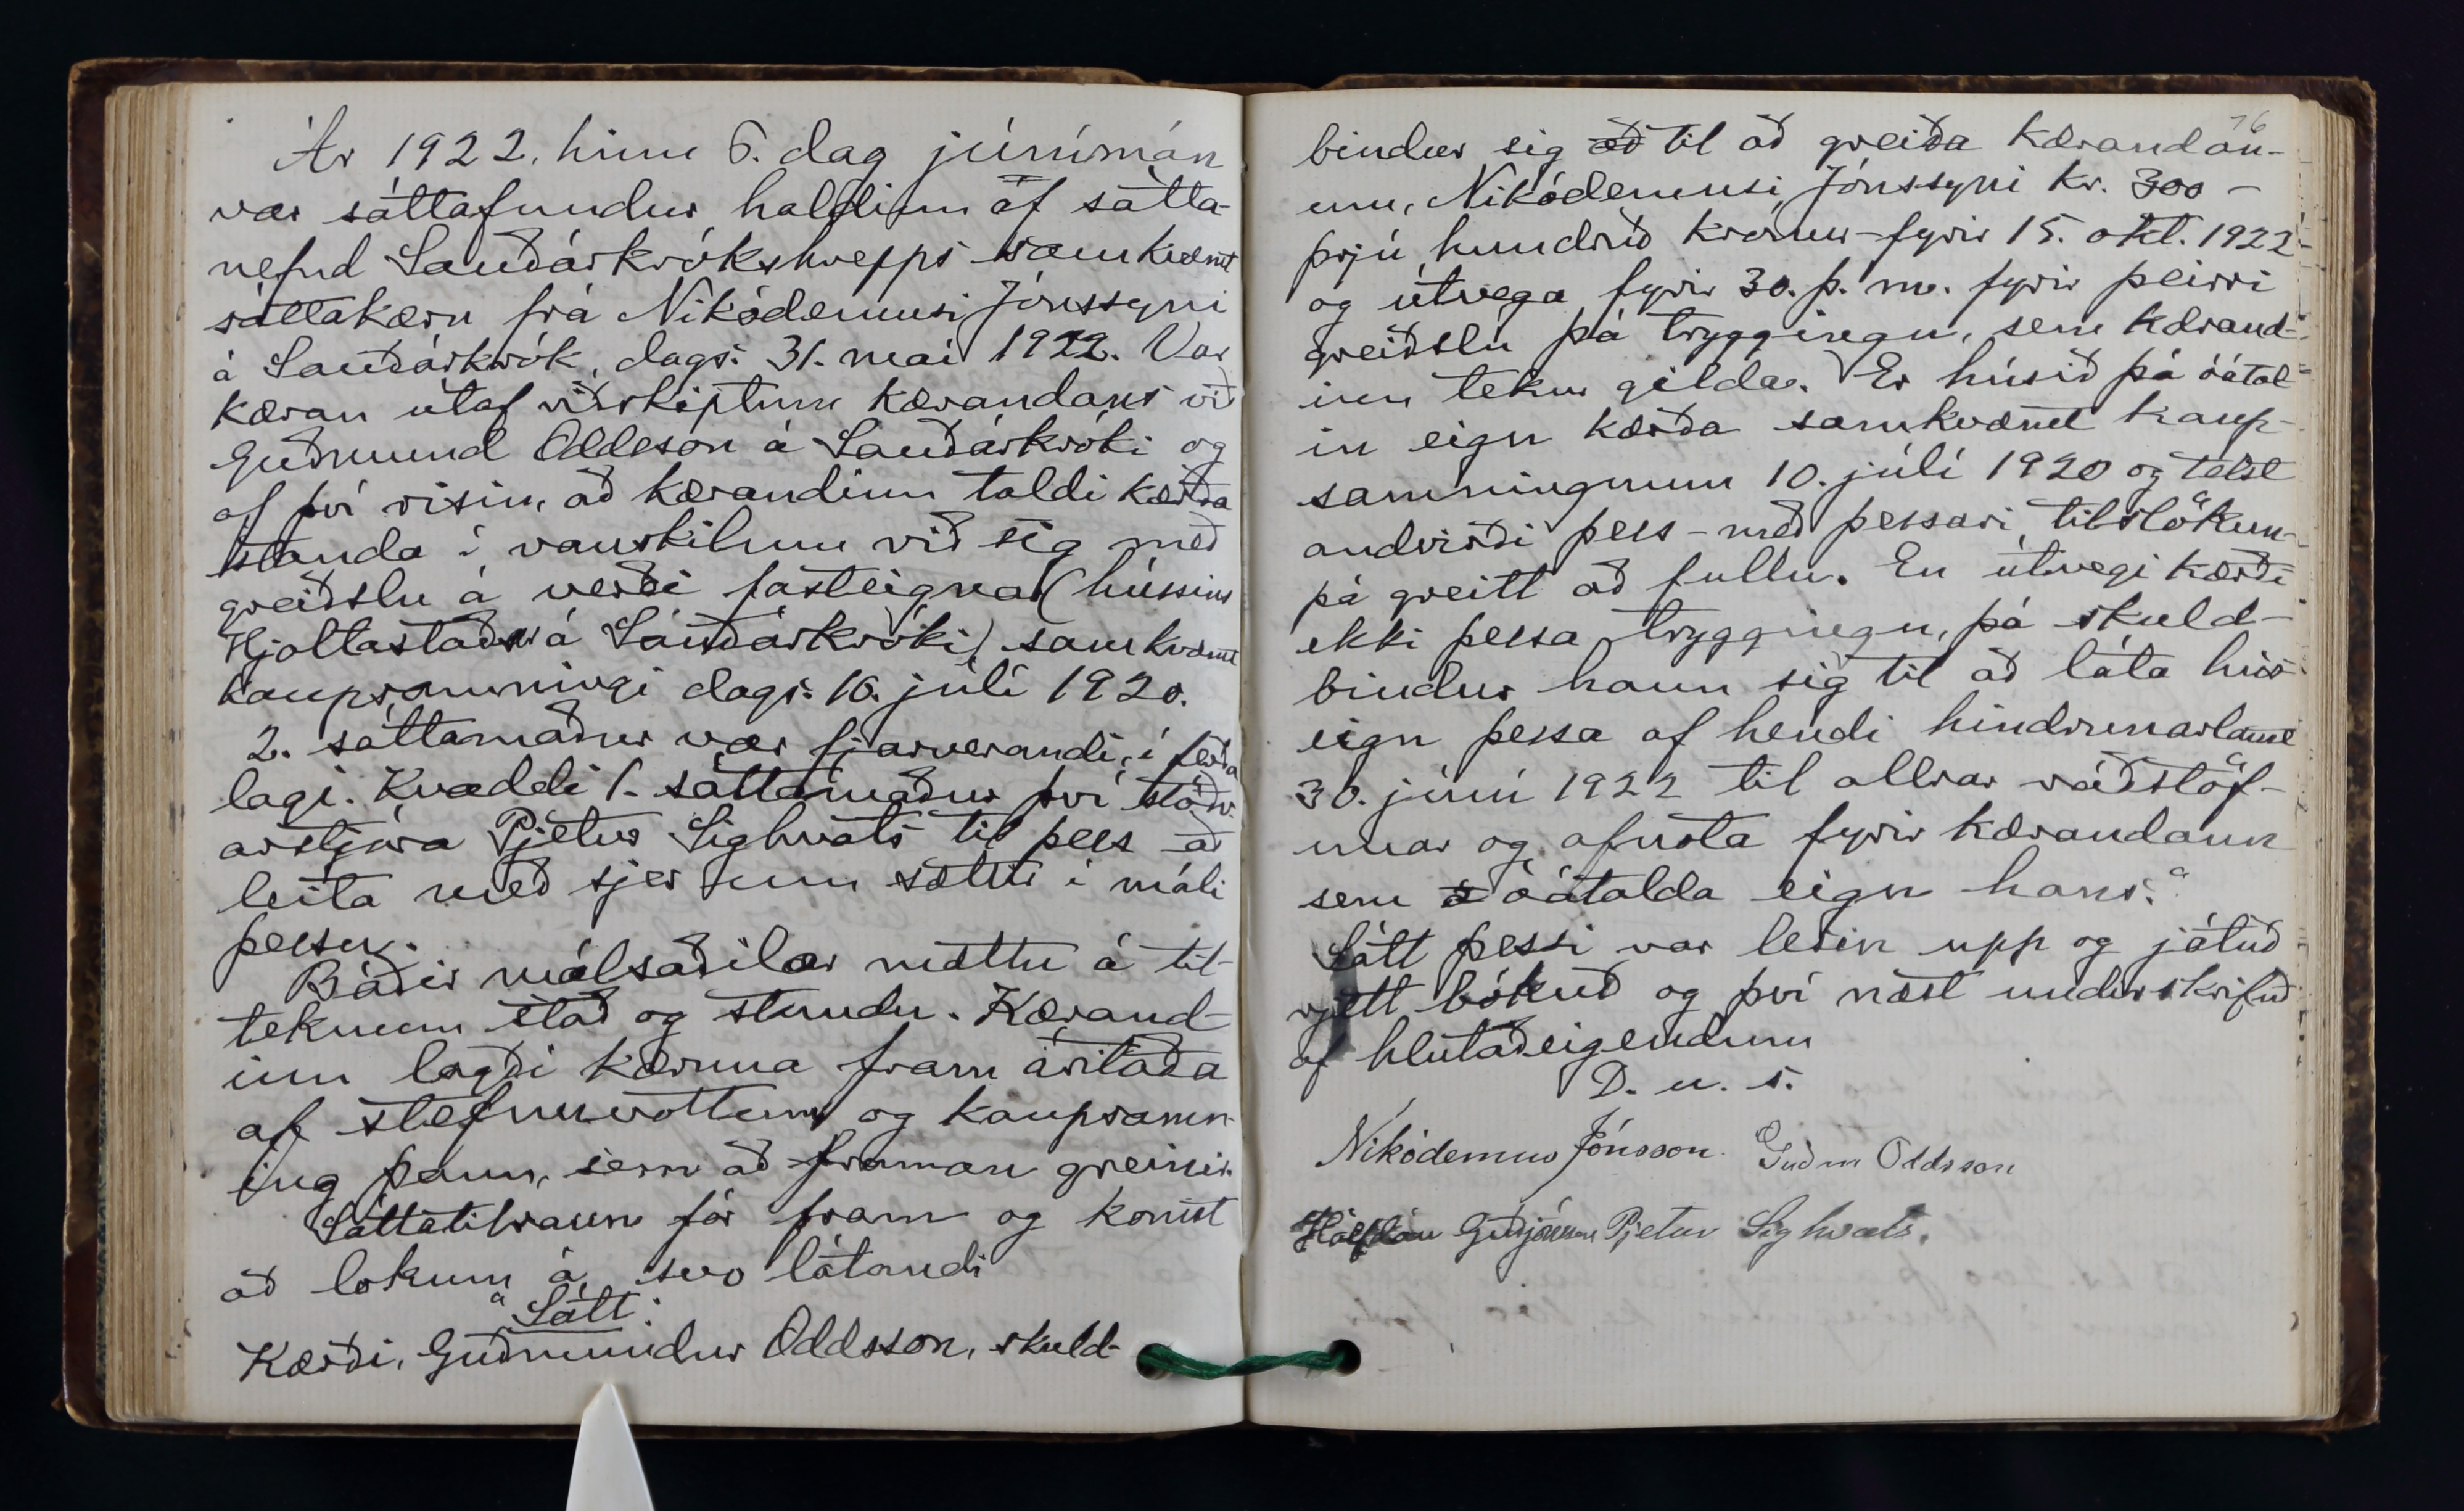 Ár 1922, hinn 6. dag júnímán
var sáttafundur haldinn af sátta-
nefnd Sauðárkrókshrepps samkvæmt
sáttakæru frá Nikódemusi Jónssyni
á Sauðárkrók, dags. 31. maí 1922. Var
kæran útaf viðskiptum kærandans við
Guðmund Oddsson á Sauðárkróki og
af því risin, að kærandinn taldi kærða
standa í vanskilum við sig með
greiðslu á verði fasteignar (hússins
Hjaltastaðir á Sauðárkróki) samkvæmt
kaupsamningi dags. 10. júlí 1920.
2. sáttamaður var fjarverandi, í ferða
lagi. Kvaddi 1. sáttamaður því stöðv-
arstjóra Pjetur Sighvats til þess að
leita með sjer um sættir í máli
þessu.
Báðir málsaðilar mættu á til-
teknum stað og stundu. Kærand-
inn lagði kæruna fram áritaða
af stefnuvottum og kaupsamn-
ing þann, sem að framan greinir.
Sáttatilraun fór fram og komst
að lokum á svo látandi
"Sátt:
Kærði, Guðmundur Oddsson, skuld-
76
bindur sig að til að greiða kærandan-
um, Nikódemusi Jónssyni kr. 300 -
þrjú hundruð krónur - fyrir 15. okt. 1922 -
og útvega fyrir 30. þ. m. fyrir þeirri
greiðslu þá tryggingu, sem kærand-
inn tekur gilda. Er húsið þá óátal-
in eign kærða samkvæmt kaup-
samningnum 10. júlí 1920 og telst
andvirði þess - með þessari tilslökun -
þá greitt að fullu. En útvegi kærði
ekki þessa tryggingu, þá skuld-
bindur hann sig til að láta hús-
eign þessa af hendi hindrunarlaust
30. júní 1922 til allrar ráðstöf-
unar og afnota fyrir kærandann
sem óátalda eign hans."
Sátt þessi var lesin upp og játuð
rjett bókuð og því næst undirskrifuð
af hlutaðeigendum
D. u. s.
Nikódemus Jónsson. Guðm Oddsson
Hálfdan Guðjónsson Pjetur Sighvats.